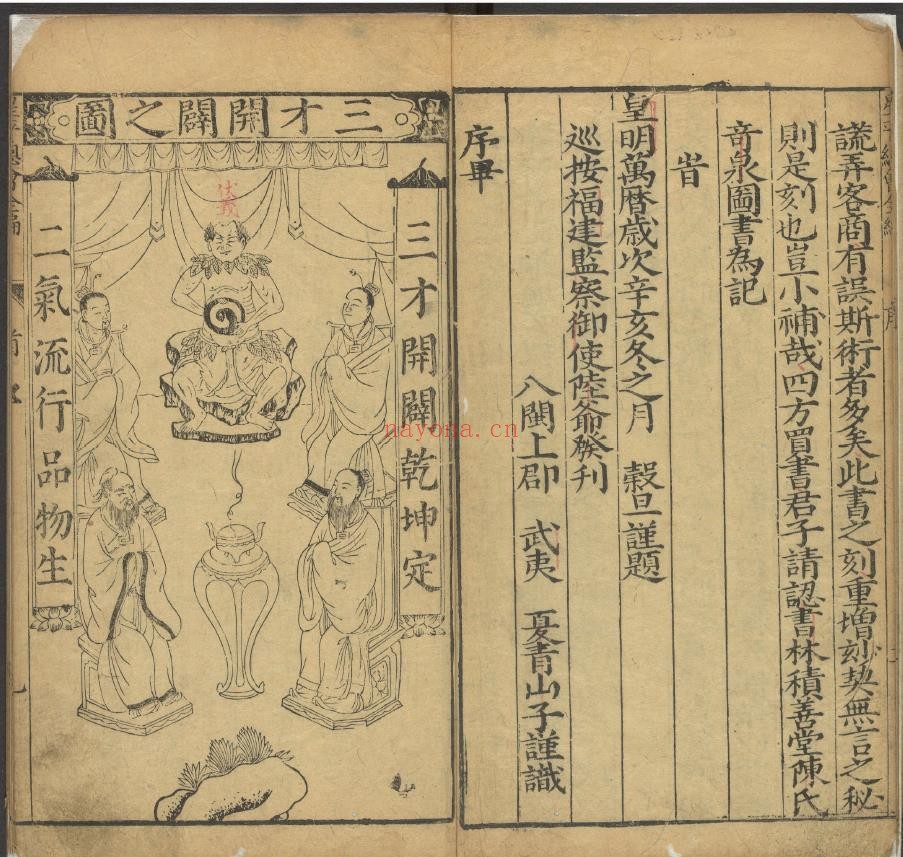 謊弄客商有誤斯術者多矣此書之刻重增刻契無言之秘
則是刻也豈小補哉四方買書君子請認書林積善堂陳氏
奇泉圖書為記
旹
皇明萬曆歲次辛亥冬之月 穀旦謹題
巡按福建監察御使陸爺發刊
八閩上郡 武夷 夏青山子謹識
序畢
三才開闢之圖
三才開闢乾坤定
伏羲
二氣流行品物生
nayona.cn